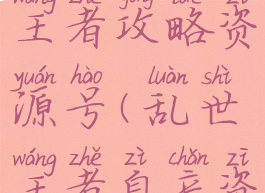 wáng zhě gōng lüè zī
王者攻略资
yuán hào luàn shì
源号(乱世
wáng zhě zì chǎn zī
王者自产资